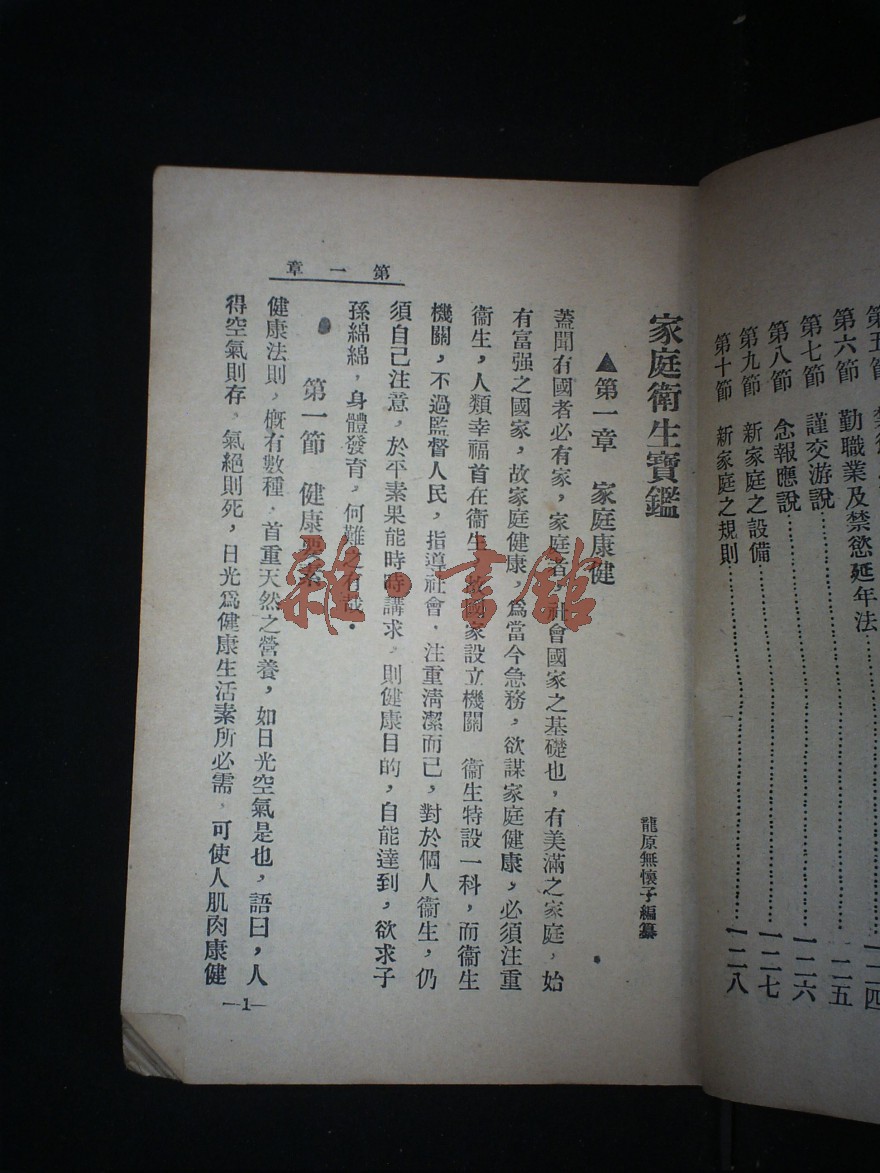 第五節
一二四
第六節　勤職業及禁慾延年法
一二五
第七節　謹交游說……一二六
第八節　念報應說……一二七
第九節　新家庭之設備……一二七
第十節　新家庭之規則……一二八
家庭衞生寶鑑
龍原無懷子編纂
▲第一章　家庭康健
蓋聞有國者必有家，家庭者，社會國家之基礎也，有美滿之家庭，始
有富强之國家，故家庭健康，爲當今急務，欲謀家庭健康，必須注重
衞生，人類幸福首在衞生，故國家設立機關　衞生特設一科，而衞生
機關，不過監督人民，指導社會，注重淸潔而已，對於個人衞生，仍
須自己注意，於平素果能時時講求，則健康目的，自能達到，欲求子
孫綿綿，身體發育，何難之有哉．
第一節　健康要素
健康法則，槪有數種，首重天然之營養，如日光空氣是也，語曰，人
得空氣則存，氣絕則死，日光爲健康生活素所必需，可使人肌肉康健
第一章
—1—
雜·書館